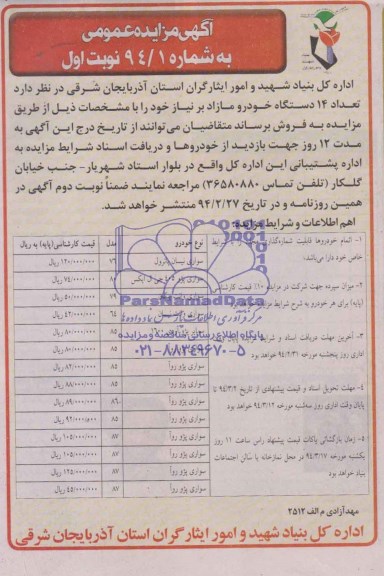 آگهی مزایده عمومی
به شماره ۹۴/۱ نوبت اول
اداره کل بنیاد شهید و امور ایثارگران استان آذربایجان شرقی در نظر دارد
تعداد ۱۴ دستگاه خودرو مازاد بر نیاز خود را با مشخصات ذیل از طریق
مزایده به فروش برساند متقاضیان می‌توانند از تاریخ درج این آگهی به
مدت ۱۲ روز جهت بازدید از خودروها و دریافت اسناد شرایط مزایده به
اداره پشتیبانی این اداره کل واقع در بلوار استاد شهریار- جنب خیابان
گلکار (تلفن تماس ۳۶۵۸۰۸۸۰) مراجعه نمایند ضمناً نوبت دوم آگهی در
همین روزنامه و در تاریخ ۹۴/۲/۲۷ منتشر خواهد شد.
اهم اطلاعات و شرایط مزایده:
۱- اتمام خودروها قابلیت شماره‌گذاری شرایط
خاص خود دارا می‌باشد:
۲- میزان سپرده جهت شرکت در مزایده ۱۰٪ قیمت کارشناسی
(پایه) برای هر خودرو به شرح
۳- آخرین مهلت دریافت اسناد و شرایط
اداری روز پنجشنبه مورخه ۹۴/۲/۳۱ خواهد بود
۴- مهلت تحویل اسناد و قیمت پیشنهادی از تاریخ ۹۴/۳/۲ تا
پایان وقت اداری روز سه‌شنبه مورخه ۹۴/۳/۱۲ خواهد بود
۵- زمان بازگشائی پاکات قیمت پیشنهاد راس ساعت ۱۱ روز
یکشنبه مورخه ۹۴/۳/۱۷ در محل نمازخانه یا سالن اجتماعات
بنیاد خواهد بود
نوع خودرو مدل قیمت کارشناسی (پایه) به ریال
سواری نیسان پاترول ۷۲ ۱۲۰/۰۰۰/۰۰۰ ریال
۷۵/۰۰۰/۰۰۰ ریال
۷۹ ۵۰/۰۰۰/۰۰۰ ریال
۶۴ ۴۲/۰۰۰/۰۰۰ ریال
۸۵ ۸۰/۰۰۰/۰۰۰ ریال
۸۵ ۸۰/۰۰۰/۰۰۰ ریال
سواری پژو روآ ۸۵ ۸۲/۰۰۰/۰۰۰ ریال
سواری پژو روآ ۸۵ ۸۸/۰۰۰/۰۰۰ ریال
سواری پژو روآ ۸۶ ۸۹/۰۰۰/۰۰۰ ریال
سواری پژو روآ ۸۵ ۹۲/۰۰۰/۰۰۰ ریال
سواری پژو روآ ۸۷ ۱۰۵/۰۰۰/۰۰۰ ریال
سواری پژو روآ ۸۷ ۱۰۵/۰۰۰/۰۰۰ ریال
سواری پژو روآ ۸۷ ۱۲۵/۰۰۰/۰۰۰ ریال
سواری پژو روآ ۸۷ ۴۵/۰۰۰/۰۰۰ ریال
ParsNamadData
پایگاه اطلاع رسانی مناقصه و مزایده
۰۲۱-۸۸۳۴۹۶۷۰-۵
مهدآزادی م الف ۲۵۱۲
اداره کل بنیاد شهید و امور ایثارگران استان آذربایجان شرقی